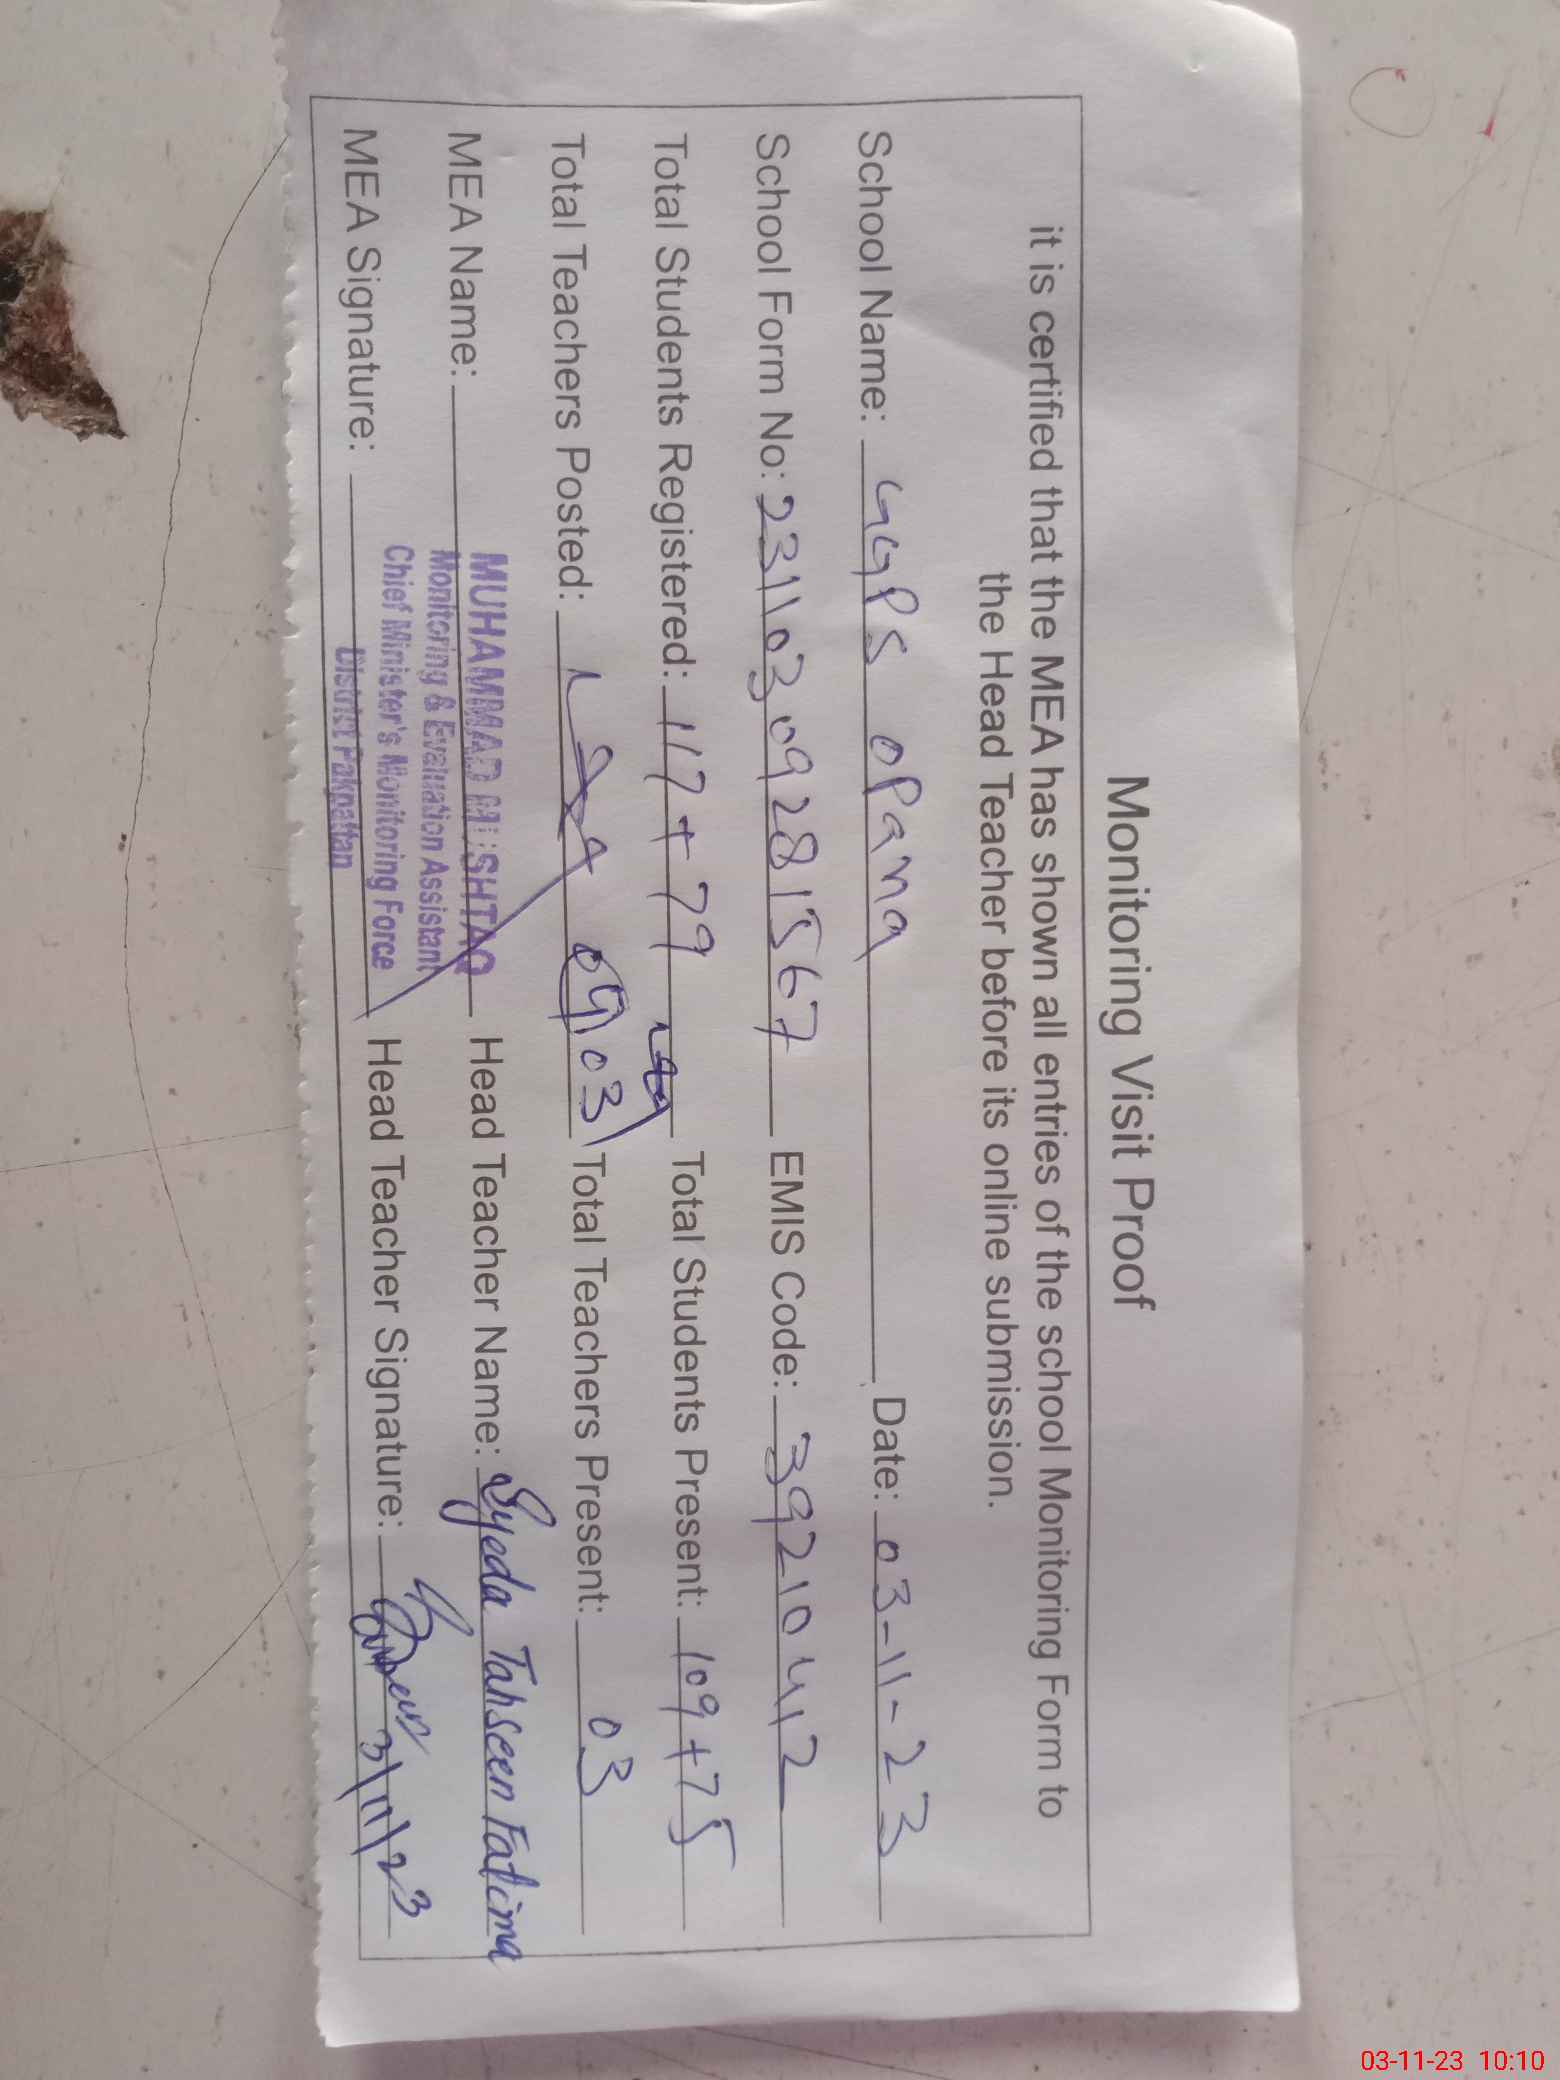 Monitoring Visit Proof
it is certified that the MEA has shown all entries of the school Monitoring Form to
the Head Teacher before its online submission.
School Name: GGPS OPana Date: 03-11-23
School Form No: 23110309281567 EMIS Code: 39210412
Total Students Registered: 117+79 Total Students Present: 109+75
Total Teachers Posted: 03 Total Teachers Present: 03
MEA Name: MUHAMMAD MUSHTAQ Head Teacher Name: Syeda Tahseen Fatima
Monitoring & Evaluation Assistant
Chief Minister's Monitoring Force
MEA Signature: Head Teacher Signature: 3/11/23
District Pakpattan
03-11-23 10:10